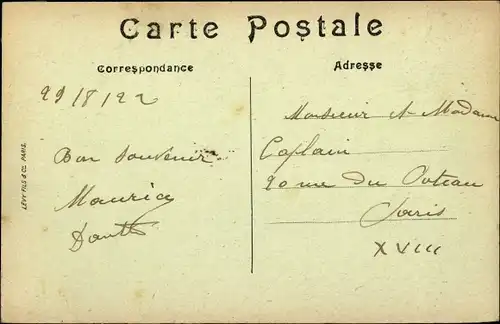 Carte Postale
Correspondance
Adresse
29/8/22
Bon souvenir
Maurice
LÉVY FILS & Cie PARIS
Monsieur et Madame
Caplain
20 rue du Poteau
Paris
XVIII